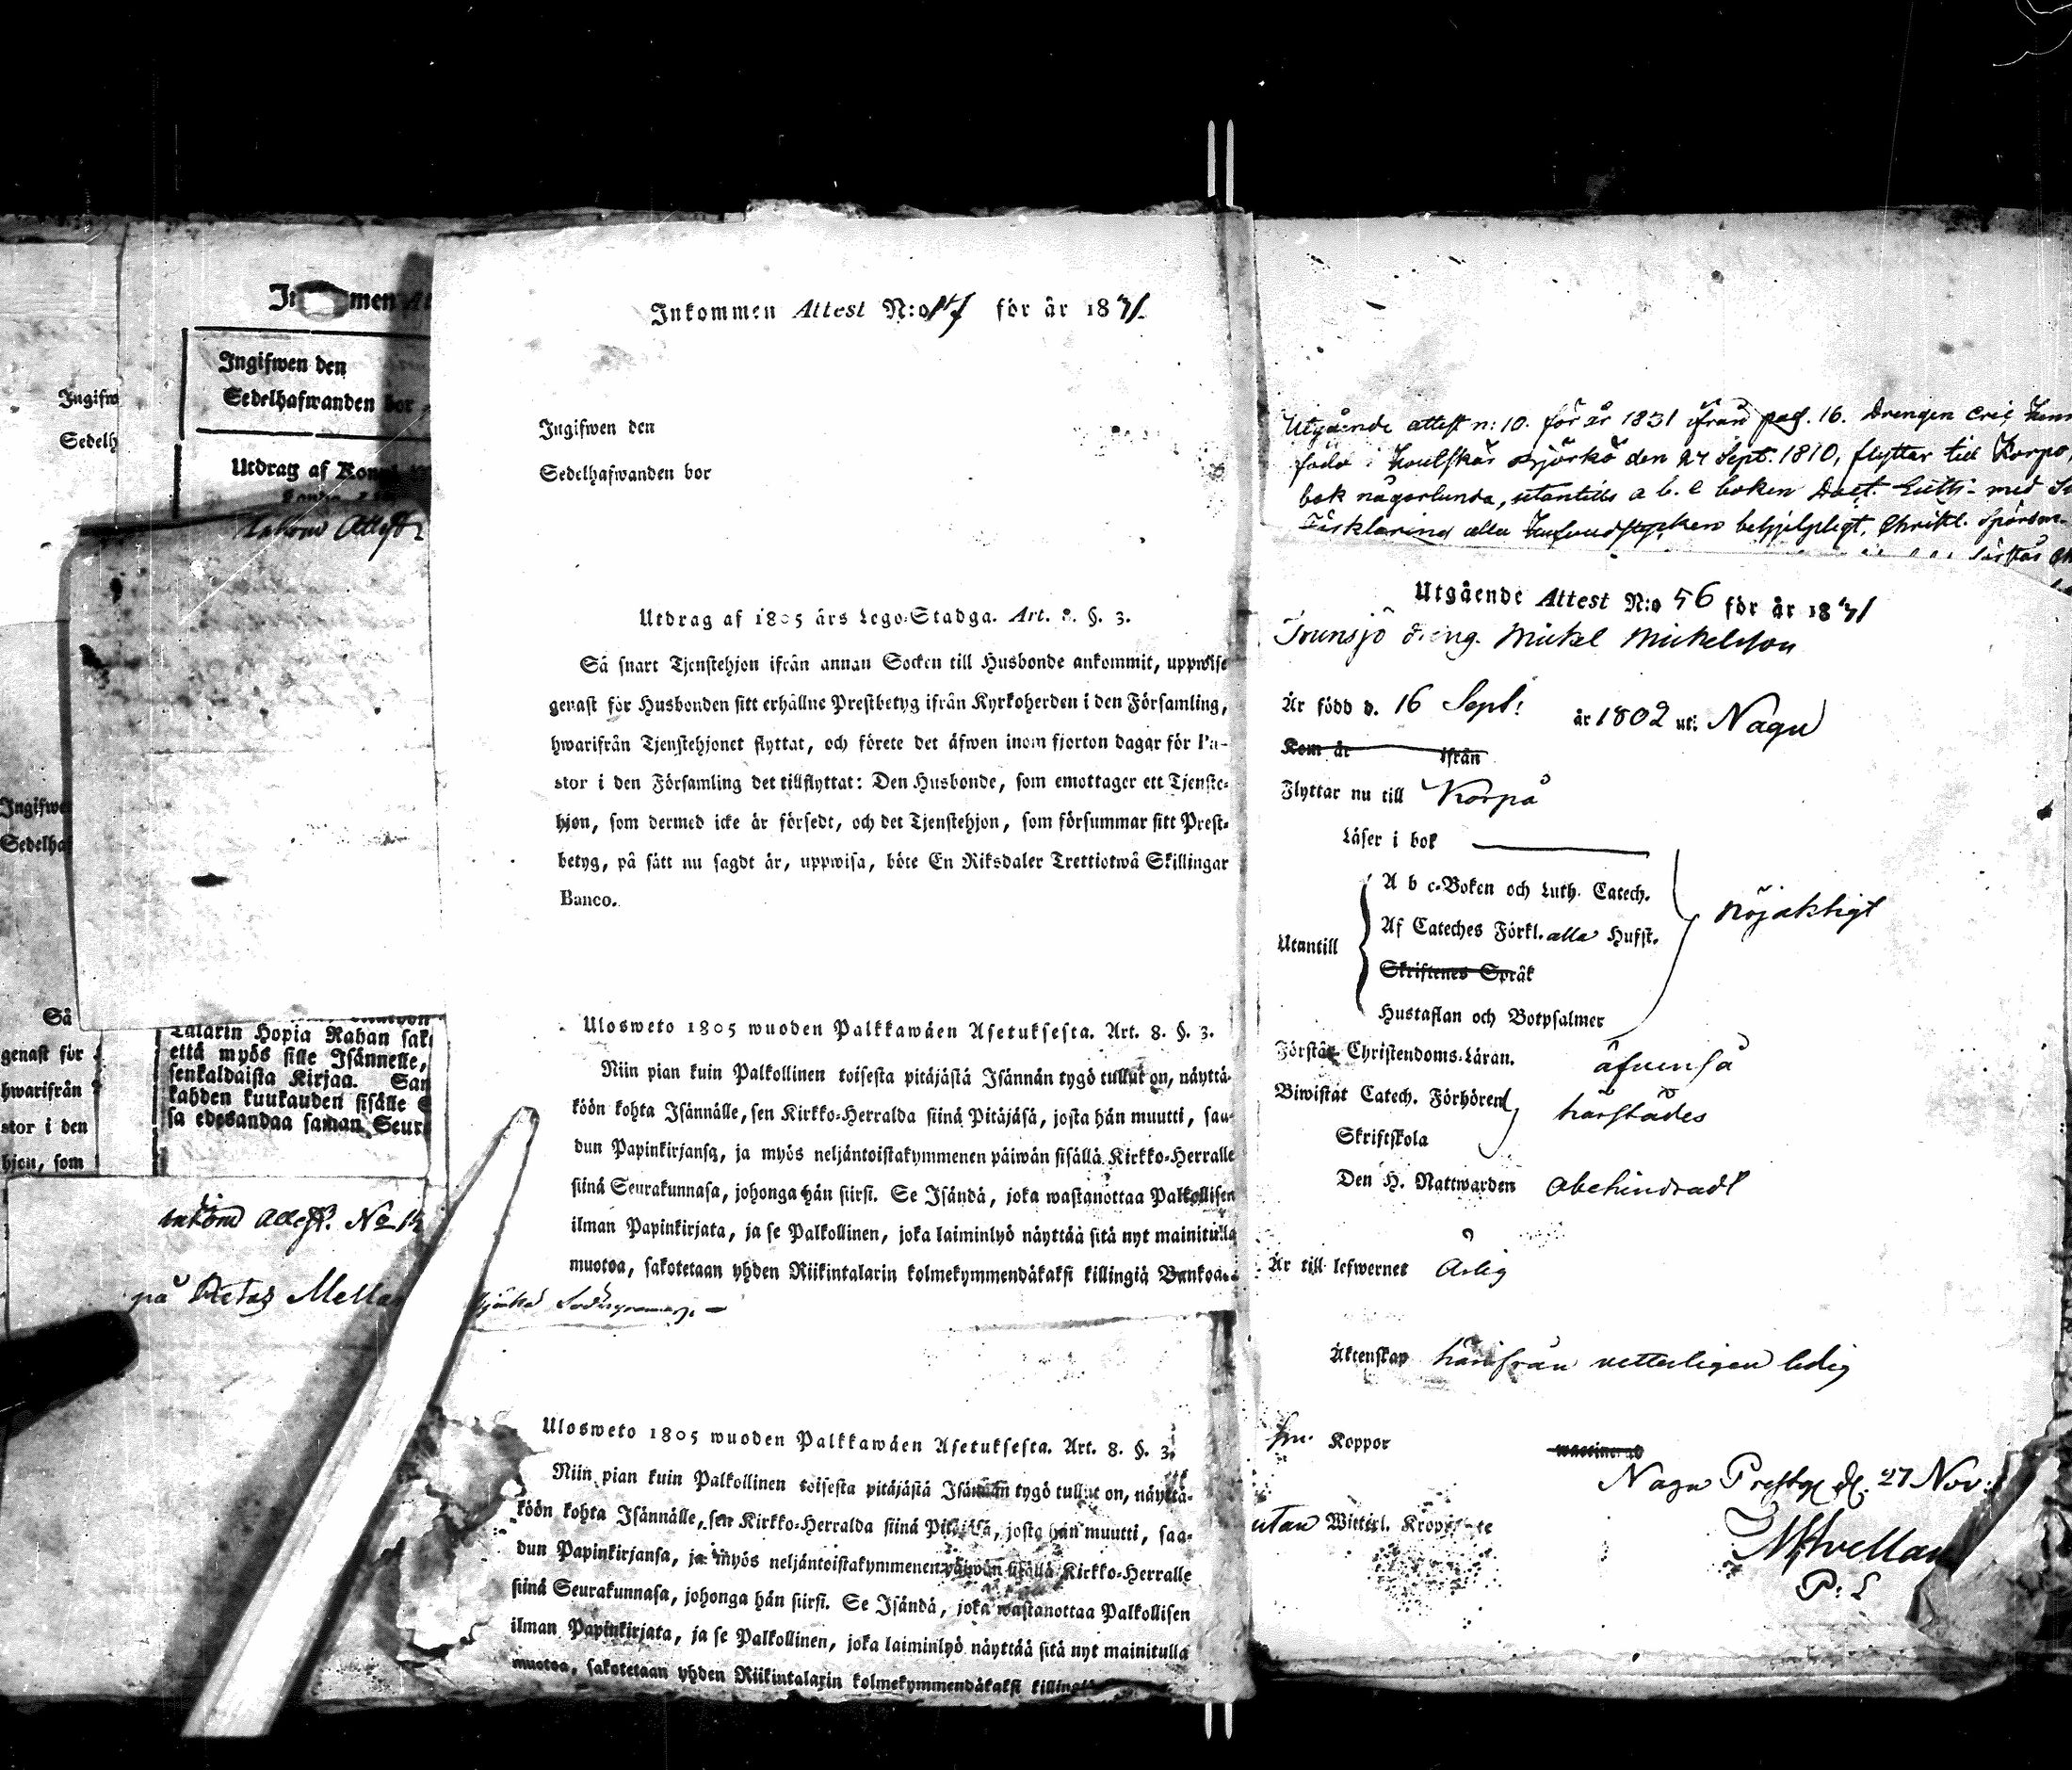 Ingifw
Sedelh
Ingifwe
Sedelha
Så
genast för
hwarifrån
stor i den
hjon, som
men At
Ingifwen den
Sedelhafwanden bor
Utdrag af
Inkom Attest
Talarin Hopia Rahan sak
että myös sille Isännelle,
senkaldaista Kirjaa. San
kahden kuukauden sisälle
sa edesandaa saman Seur
inkom Attest. No
på Retas Mella
Inkommen Attest N:o för år 1831
Ingifwen den
Sedelhafwanden bor
Utdrag af 1805 års Lego-Stadga. Art. 8. §. 3.
Så snart Tjenstehjon ifrån annan Socken till Husbonde ankommit, uppwise
genast för Husbonden sitt erhållne Prestbetyg ifrån Kyrkoherden i den Församling,
hwarifrån Tjenstehjonet flyttat, och förete det äfwen inom fjorton dagar för Pa-
stor i den Församling det tillflyttat: Den Husbonde, som emottager ett Tjenste-
hjon, som dermed icke är försedt, och det Tjenstehjon, som försummar sitt Prest-
betyg, på sätt nu sagdt är, uppwisa, böte En Riksdaler Trettiotwå Skillingar
Banco.
Ulosweto 1805 wuoden Palkkawäen Asetuksesta. Art. 8. §. 3.
Niin pian kuin Palkollinen toisesta pitäjästä Isännän tygö tullut on, näyttä-
köön kohta Isännälle, sen Kirkko-Herralda siinä Pitäjäsä, josta hän muutti, saa-
dun Papinkirjansa, ja myös neljäntoistakymmenen päiwän sisällä Kirkko-Herralle
siinä Seurakunnasa, johonga hän siirsi. Se Isändä, joka wastanottaa Palkollisen
ilman Papinkirjata, ja se Palkollinen, joka laiminlyö näyttää sitä nyt mainitulla
muotoa, sakotetaan yhden Riikintalarin kolmekymmendäkaksi killingiä Bankoa.
Ulosweto 1805 wuoden Palkkawäen Asetuksesta. Art. 8. §. 3.
Niin pian kuin Palkollinen toisesta pitäjästä Isännän tygö tullut on, näyttä-
köön kohta Isännälle, sen Kirkko-Herralda siinä Pitäjäsä, josta hän muutti, saa-
dun Papinkirjansa, ja myös neljäntoistakymmenen päiwän sisällä Kirkko-Herralle
siinä Seurakunnasa, johonga hän siirsi. Se Isändä, joka wastanottaa Palkollisen
ilman Papinkirjata, ja se Palkollinen, joka laiminlyö näyttää sitä nyt mainitulla
muotoa, sakotetaan yhden Riikintalarin kolmekymmendäkaksi
Utgående attest n: 10. för år 1831 ifrån pag. 16. Drengen Eric
född i Björkö den 24 Sept. 1810, flyttar till Korpo,
bok någorlunda, utantills a b. c boken med
alla behjelpligt, Christ. Spörsm.
Utgående Attest N:o 56 för år 1831
dreng. Mickel Mickelsson
Är född d. 16 Sept: år 1802 uti Nagu
Kom år ifrån
Flyttar nu till Korpå
Läser i bok
A b c-Boken och Luth. Catech. nöjaktigt
Af Cateches Förkl. alla Hufst.
Utantill
Skriftenes Språk
Hustaflan och Botpsalmer
Förstår Christendoms-Läran. äfvenså
Biwistat Catech. Förhören härstädes
Skriftskola
Den H. Nattwarden obehindradt
Är till lefwernet Ärlig
Äktenskap härifrån vetterligen ledig
Koppor
Nagu Prestg. d. 27 Nov:
utan Witterl.
P: L